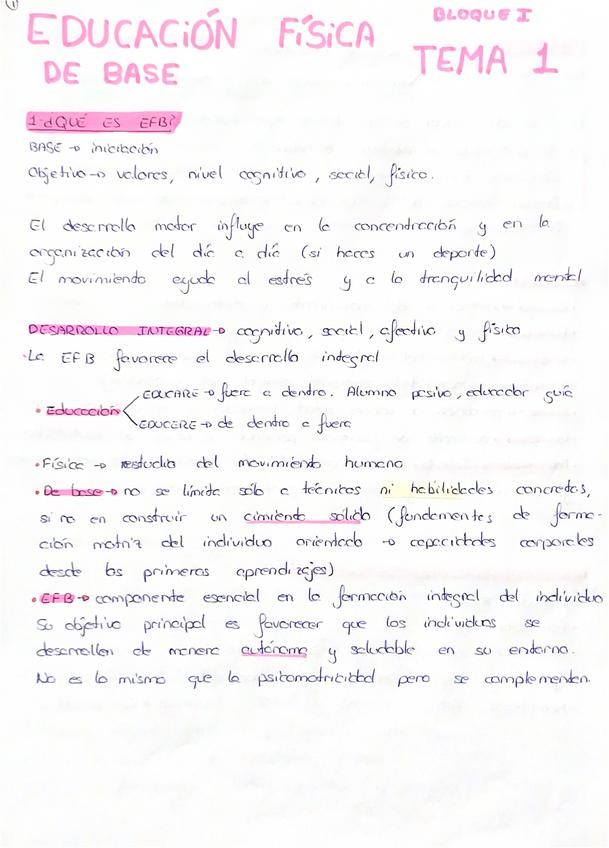 1
EDUCACIÓN FÍSICA BLOQUE I
DE BASE TEMA 1
1. ¿QUÉ ES EFB?
BASE → iniciación
Objetivo → valores, nivel cognitivo, social, físico.
El desarrollo motor influye en la concentración y en la
organización del día a día (si haces un deporte)
El movimiento ayuda al estrés y a la tranquilidad mental
DESARROLLO INTEGRAL → cognitivo, social, afectivo y físico
· La EFB favorece el desarrollo integral
EDUCARE → fuera a dentro. Alumno pasivo, educador guía
• Educación
EDUCERE → de dentro a fuera
• Física → estudio del movimiento humano
• De base → no se límita sólo a técnicas ni habilidades concretas,
si no en construir un cimiento sólido (fundamentos de forma-
ción motriz del individuo orientado → capacidades corporales
desde los primeros aprendizajes)
• EFB → componente esencial en la formación integral del individuo
Su objetivo principal es favorecer que los individuos se
desarrollen de manera autónoma y saludable en su entorno.
No es lo mismo que la psicomotricidad pero se complementan.